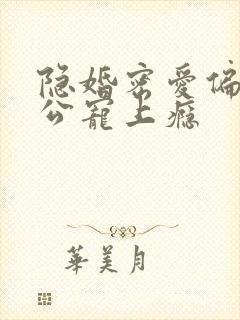 隐婚宠爱偏
公宠上瘾
華美月